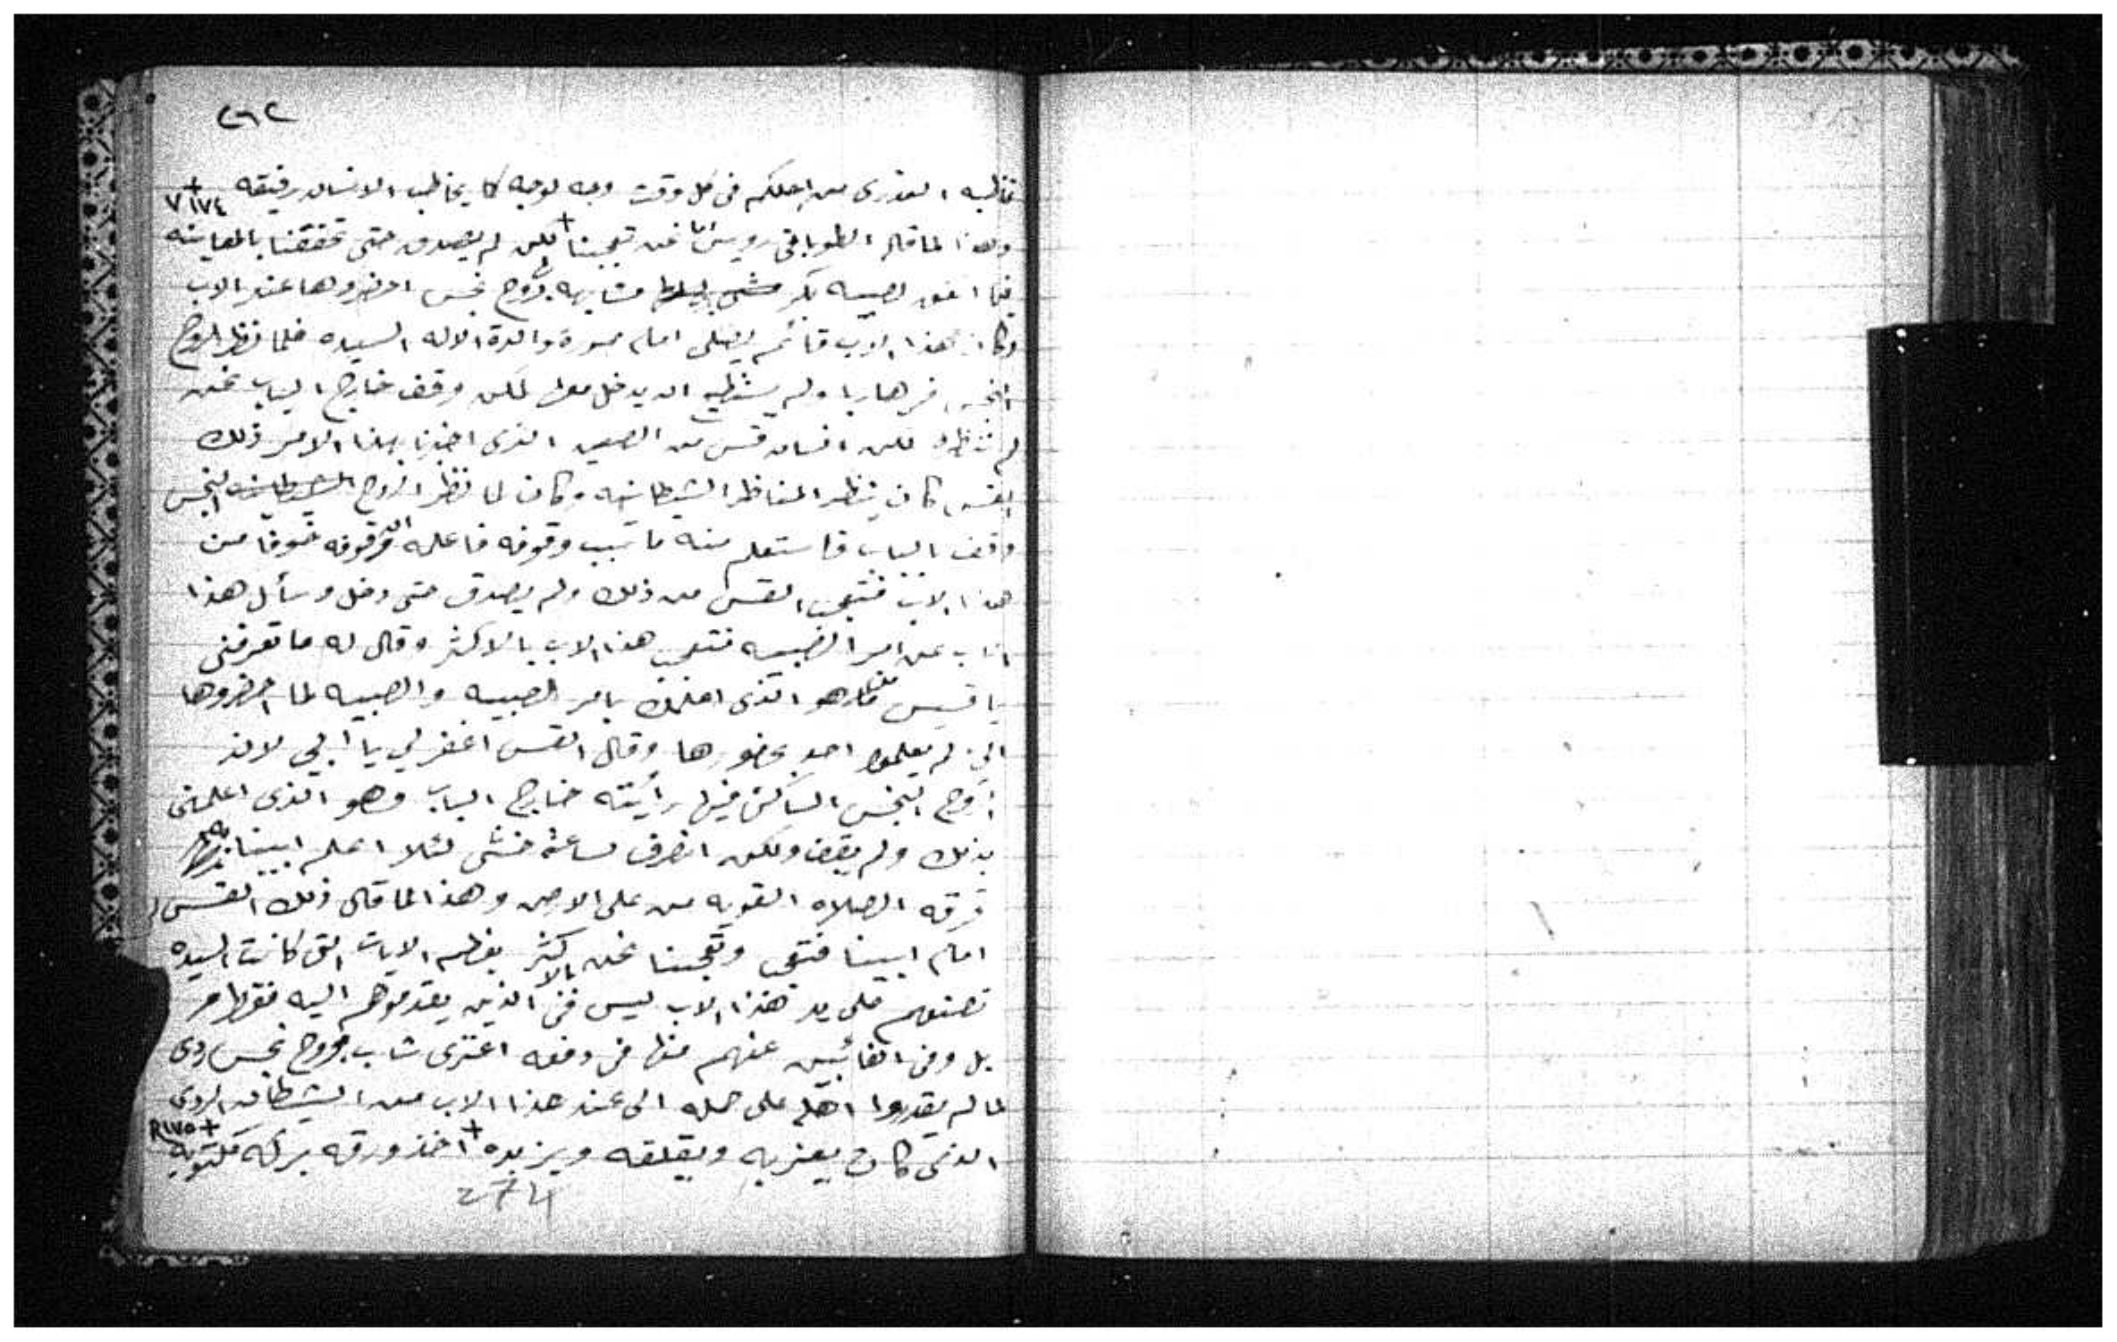 ٢٦٢
تخاطبه العذرى من اجلكم فى كل وقت وجه لوجه كما يخاطب الانسان رفيقه + ٧ ١٧٤
وهذا لما قال الطوبانى رويس انا نحن تعجبنا + لكن لم نصدق حتى تحققنا بالمعاينه
فيما اتفق لصبيه بكر مشابهه بروح نجس احضروها عند الاب
وكان هذا الاب قائم يصلى امام صورة والدة الاله السيده فلما نظر الروح
النجس فر هاربا ولم يستطيع ان يدخل معها لكن وقف خارج الباب نحن
لم ننظره لكن انسان قس من الصعيد الذى اخبرنا بهذا الامر ذلك
القس كان ينظر المناظر الشيطانيه وكان لما نظر الروح النجس
واقف بالباب فاستعلم منه ما سبب وقوفه فاعلمه ان وقوفه خوفا من
هذا الاب فتعجب القس من ذلك ولم يصدق حتى دخل وسأل هذا
الاب عن امر الصبيه فتعجب هذا الاب بالاكثر وقال له ما تعرفنى
يا قسيس من هو الذى اعلمك بامر الصبيه والصبيه لما احضروها
الي لم يعلموا احد بحضورها وقال القس اغفر لي يا أبي لان
الروح النجس الساكن فيها رأيته خارج الباب وهو الذى اعلمنى
بذلك ولم يقف ولكن انصرف لساعته خشى لئلا اعلم ابينا به
حرقه الصلاه القويه من على الارض وهذا لما قال ذلك القس
امام ابينا فتعجب وتعجبنا نحن بالاكثر بعظم الايات التى كانت السيده
تصنعهم على يد هذا الاب ليس فى الذين يقدموهم اليه فقط
بل وفى الغائبين عنهم منها فى دفعه اعترى شاب بروح نجس ردى
لما لم يقدروا اهله على حمله الى عند هذا الاب من الشيطان الردى
الذى كان يعذبه ويقلقه ويزبده + اخذ ورقه بركه مكتوبه + R ١٧٥
٢٦٤